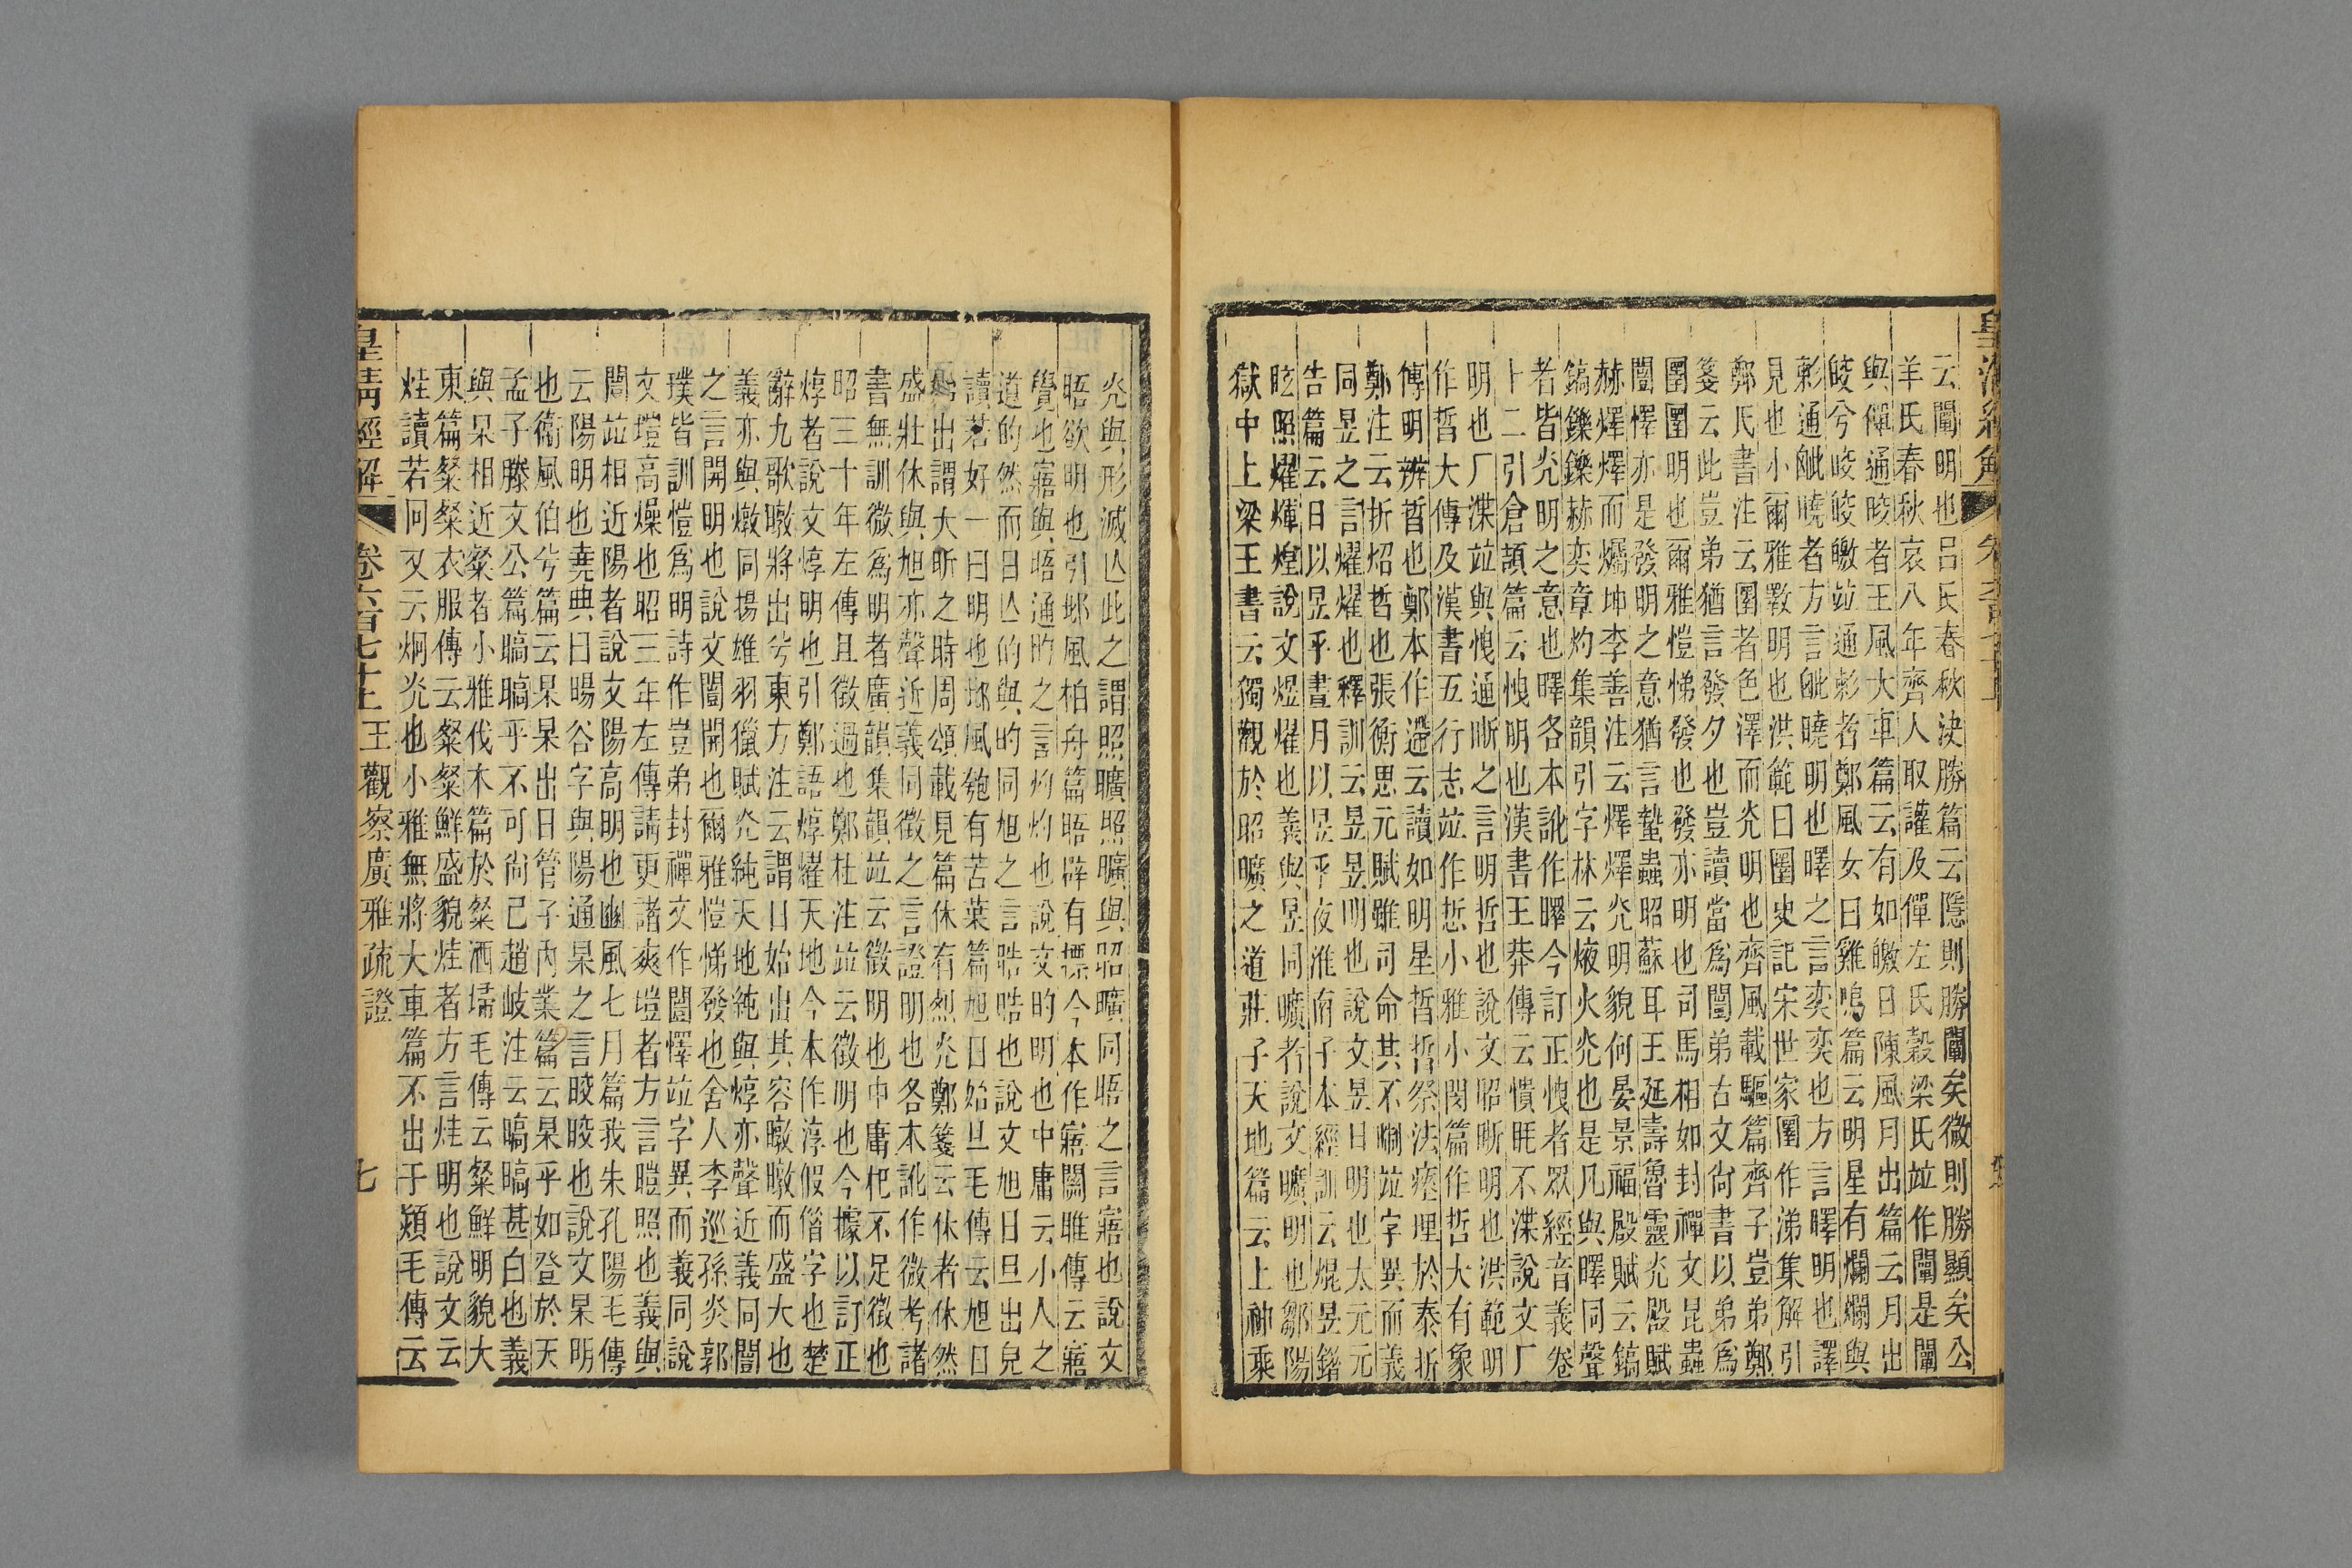 皇清經解
云闡明也呂氏春秋決勝篇云隱則勝闡矣微則勝顯矣公
羊氏春秋哀八年齊人取讙及僤左氏穀梁氏竝作闡是闡
與僤通晈者王風大車篇云有如皦日陳風月出篇云月出
皎兮皎皎皦竝通彰者鄭風女曰雞鳴篇云明星有爛爛與
彰通曉者方言曉明也曙之言奕奕也方言曙明也譯
見也小爾雅斁明也洪範曰圛史記宋世家圛作涕集解引
鄭氏書注云圛者色澤而光明也齊風載驅篇齊子豈弟鄭
箋云此豈弟猶言發夕也豈讀當爲闓弟古文尙書以弟爲
圛圛明也爾雅愷悌發也發亦明也司馬相如封禪文昆蟲
闓懌亦是發明之意猶言蟄蟲昭蘇耳王延壽魯靈光殿賦
赫燡燡而爥坤李善注云燡燡光明貌何晏景福殿賦云鎬
鎬鑠鑠赫奕章灼集韻引字林云焲火光也是凡與曎同聲
者皆光明之意也曎各本訛作曎今訂正㤺者眾經音義卷
十二引倉頡篇云㤺明也漢書王莽傳云憒眊不渫說文厂
明也厂渫竝與㤺通晣之言明哲也說文昭晣明也洪範明
作哲大傳及漢書五行志竝作悊小雅小閔篇作哲大有象
傳明辨晳也鄭本作遰云讀如明星晳晳祭法瘞埋於泰折
鄭注云折炤晳也張衡思元賦雖司命其不㗇竝字異而義
同昱之言燿燿也釋訓云昱昱明也說文昱日明也太元元
告篇云日以昱乎晝月以昱乎夜淮南子本經訓云焜昱錯
眩照燿煇煌說文煜燿也義與昱同曠者說文曠明也鄒陽
獄中上梁王書云獨觀於昭曠之道莊子天地篇云上神乘
光與形滅亾此之謂照曠照曠與昭曠同晤之言寤也說文
晤欲明也引邶風柏舟篇晤辟有摽今本作寤關雎傳云寤
覺也寤與晤通旳之言灼灼也說文旳明也中庸云小人之
道的然而日亾的與旳同旭之言晧晧也說文旭日旦出皃
讀若好一曰明也邶風匏有苦葉篇旭日始旦毛傳云旭日
始出謂大昕之時周頌載見篇休有烈光鄭箋云休者休然
盛壯休與旭亦聲近義同徵之言證明也各本訛作微考諸
書無訓微爲明者廣韻集韻竝云徵明也中庸杞不足徵也
昭三十年左傳且徵過也鄭杜注竝云徵明也今據以訂正
焞者說文焞明也引鄭語焞燿天地今本作淳假借字也楚
辭九歌暾將出兮東方注云謂日始出其容暾暾而盛大也
義亦與燉同揚雄羽獵賦光純天地純與焞亦聲近義同闓
之言開明也說文闓開也爾雅愷悌發也舍人李巡孫炎郭
璞皆訓愷爲明詩作豈弟封禪文作闓懌竝字異而義同說
文塏高燥也昭三年左傳請更諸爽塏者方言暟照也義與
闓竝相近陽者說文陽高明也豳風七月篇我朱孔陽毛傳
云陽明也堯典曰暘谷字與陽通杲之言晈晈也說文杲明
也衞風伯兮篇云杲杲出日管子內業篇云杲乎如登於天
孟子滕文公篇暠暠乎不可尙已趙岐注云暠暠甚白也義
與杲相近粲者小雅伐木篇於粲洒埽毛傳云粲鮮明貌大
東篇粲粲衣服傳云粲粲鮮盛貌烓者方言烓明也說文云
烓讀若冋又云炯光也小雅無將大車篇不出于熲毛傳云
皇清經解 卷六百七十上 王觀察廣雅疏證 七